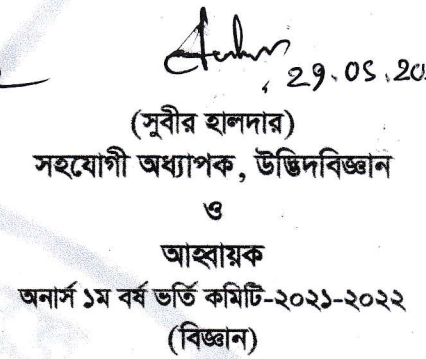 29.05.20
(সুবীর হালদার)
সহযোগী অধ্যাপক, উদ্ভিদবিজ্ঞান
ও
আহ্বায়ক
অনার্স ১ম বর্ষ ভর্তি কমিটি-২০২১-২০২২
(বিজ্ঞান)